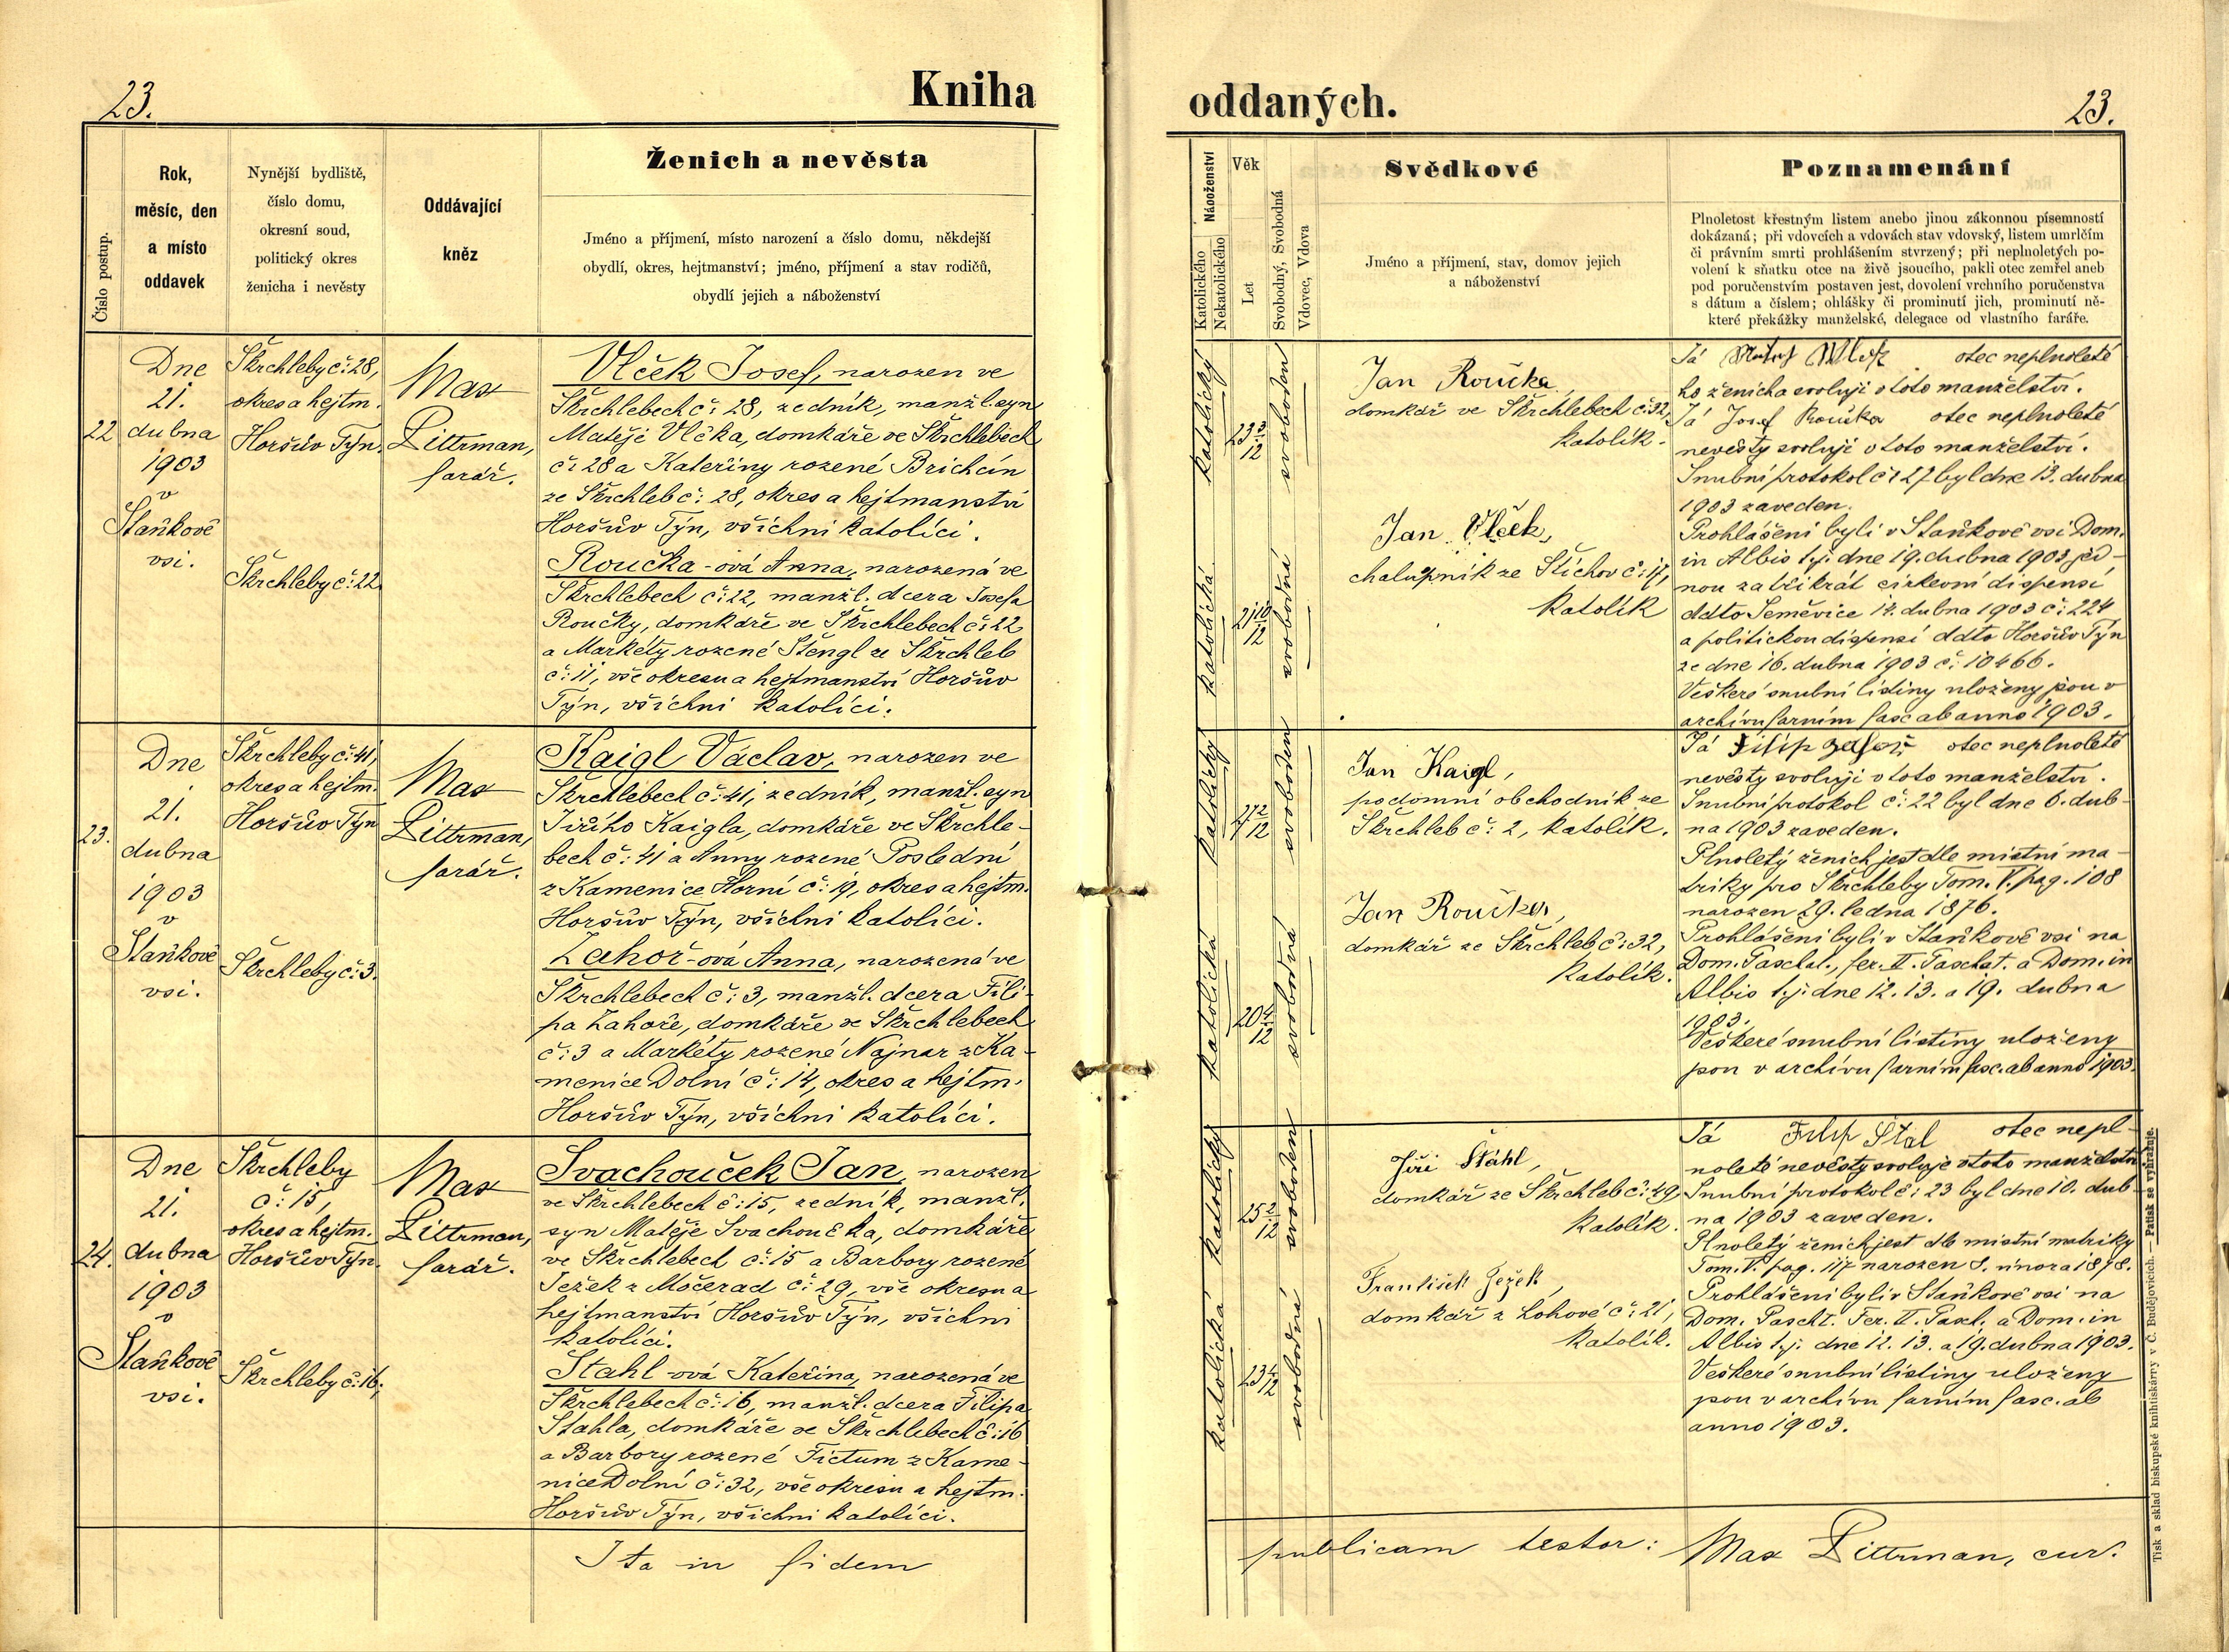 23.
Kniha
Číslo postup.
Rok,
měsíc, den
a místo
oddavek
Nynější bydliště,
číslo domu,
okresní soud,
politický okres
ženicha i nevěsty
Oddávající
kněz
Ženich a nevěsta
Jméno a příjmení, místo narození a číslo domu, někdejší
obydlí, okres, hejtmanství; jméno, příjmení a stav rodičů,
obydlí jejich a náboženství
22
Dne
21.
dubna
1903
v
Staňkově
vsi.
Škrchleby č: 28,
okres a hejtm.
Horšův Týn.
Škrchleby č: 22
Max
Littrman,
farář.
Vlček Josef, narozen ve
Škrchlebech č: 28, zedník, manžl. syn
Matěje Vlčka, domkáře ve Škrchlebech
č: 28 a Kateřiny rozené Brichcín
ze Škrchleb č: 28, okres a hejtmanství
Horšův Týn, všichni katolíci.
Roučka-ová Anna, narozená ve
Škrchlebech č: 22, manžl. dcera Josefa
Roučky, domkáře ve Škrchlebech č: 22
a Markéty rozené Štengl ze Škrchleb
č: 11, vše okresu a hejtmanství Horšův
Týn, všichni katolíci.
23.
Dne
21.
dubna
1903
v
Staňkově
vsi.
Škrchleby č: 41,
okres a hejtm.
Horšův Týn
Škrchleby č: 3.
Max
Littrman,
farář.
Kaigl Václav, narozen ve
Škrchlebech č: 41, zedník, manžl. syn
Jiřího Kaigla, domkáře ve Škrchle-
bech č: 41 a Anny rozené Poslední
z Kamenice Horní č: 19, okres a hejtm.
Horšův Týn, všichni katolíci.
Zahoř-ová Anna, narozená ve
Škrchlebech č: 3, manžl. dcera Fili-
pa Zahoře, domkáře ze Škrchlebech
č: 3 a Markéty rozené Najnar z Ka-
menice Dolní č: 14, okres a hejtm.
Horšův Týn, všichni katolíci.
24.
Dne
21.
dubna
1903
v
Staňkově
vsi.
Škrchleby
č: 15,
okres a hejtm.
Horšův Týn.
Škrchleby č: 16,
Max
Littrman,
farář.
Svachouček Jan, narozen
ve Škrchlebech č: 15, zedník, manžl.
syn Matěje Svachoučka, domkáře
ve Škrchlebech č: 15 a Barbory rozené
Ježek z Močerad č: 29, vše okresu a
hejtmanství Horšův Týn, všichni
katolíci.
Stahl-ová Kateřina, narozená ve
Škrchlebech č: 16, manžl. dcera Filipa
Stahla, domkáře ze Škrchlebech č: 16
a Barbory rozené Fictum z Kame-
nice Dolní č: 32, vše okresu a hejtm.
Horšův Týn, všichni katolíci.
Ita in fidem
oddaných.
23.
Náboženství
Katolického
Nekatolického
Věk
Let
Svobodný, Svobodná
Vdovec, Vdova
Svědkové
Jméno a příjmení, stav, domov jejich
a náboženství
Poznamenání
Plnoletost křestným listem anebo jinou zákonnou písemností
dokázaná; při vdovcích a vdovách stav vdovský, listem umrlčím
či právním smrti prohlášením stvrzený; při neplnoletých po-
volení k sňatku otce na živě jsoucího, pakli otec zemřel aneb
pod poručenstvím postaven jest, dovolení vrchního poručenstva
s dátum a číslem; ohlášky či prominutí jich, prominutí ně-
které překážky manželské, delegace od vlastního faráře.
katolický
23 3/12
svoboden
katolická
21 10/12
svobodná
Jan Roučka,
domkář ve Škrchlebech č: 32,
katolík.
Jan Vlček,
chalupník ze Štichov č: 17,
katolík
Já otec neplnoleté
ho ženicha svoluji v toto manželství.
Já Josef Roučka otec neplnoleté
nevěsty svoluji v toto manželství.
Snubní protokol č: 27 byl dne 13. dubna
1903 zaveden.
Prohlášeni byli v Staňkově vsi Dom.
in Albis t.j. dne 19. dubna 1903 jed-
nou za třikrát církevní dispensí
ddto Semněvice 14. dubna 1903 č: 224
a politickou dispensí ddto Horšův Týn
ze dne 16. dubna 1903 č: 10466.
Veškeré snubní listiny uloženy jsou v
archivu farním fasc. ab anno 1903.
katolický
27 2/12
svoboden
katolická
20 4/12
svobodná
Jan Kaigl,
podomní obchodník ze
Škrchleb č: 2, katolík.
Jan Roučka,
domkář ze Škrchleb č: 32,
katolík.
Já Filip otec neplnoleté
nevěsty svoluji v toto manželství.
Snubní protokol č: 22 byl dne 6. dub-
na 1903 zaveden.
Plnoletý ženich jest dle místní ma-
triky pro Škrchleby Tom. V. pag. 108
narozen 29. ledna 1876.
Prohlášeni byli v Staňkově vsi na
Dom. Paschat., fer. II. Paschat. a Dom. in
Albis t.j. dne 12. 13. a 19. dubna
1903.
Veškeré snubní listiny uloženy
jsou v archivu farním fasc. ab anno 1903.
katolický
25 2/12
svoboden
katolická
svobodná
Jiří Stáhl,
domkář ze Škrchleb č: 49,
katolík.
František Ježek,
domkář z Lohové č: 21,
katolík.
Já Filip Stal otec nepl-
noleté nevěsty svoluje v toto manželství.
Snubní protokol č: 23 byl dne 10. dub-
na 1903 zaveden.
Plnoletý ženich jest dle místní matriky
Tom. V. pag. 117 narozen 8. února 1878.
Prohlášeni byli v Staňkově vsi na
Dom. Pascht. Fer. II. Pasch. a Dom. in
Albis t.j. dne 12. 13. a 19. dubna 1903.
Veškeré snubní listiny uloženy
jsou v archivu farním fasc. ab
anno 1903.
publicam testor: Max Littrman, cur.
Tisk a sklad biskupské knihtiskárny v Č. Budějovicích. — Patisk se vyhražuje.